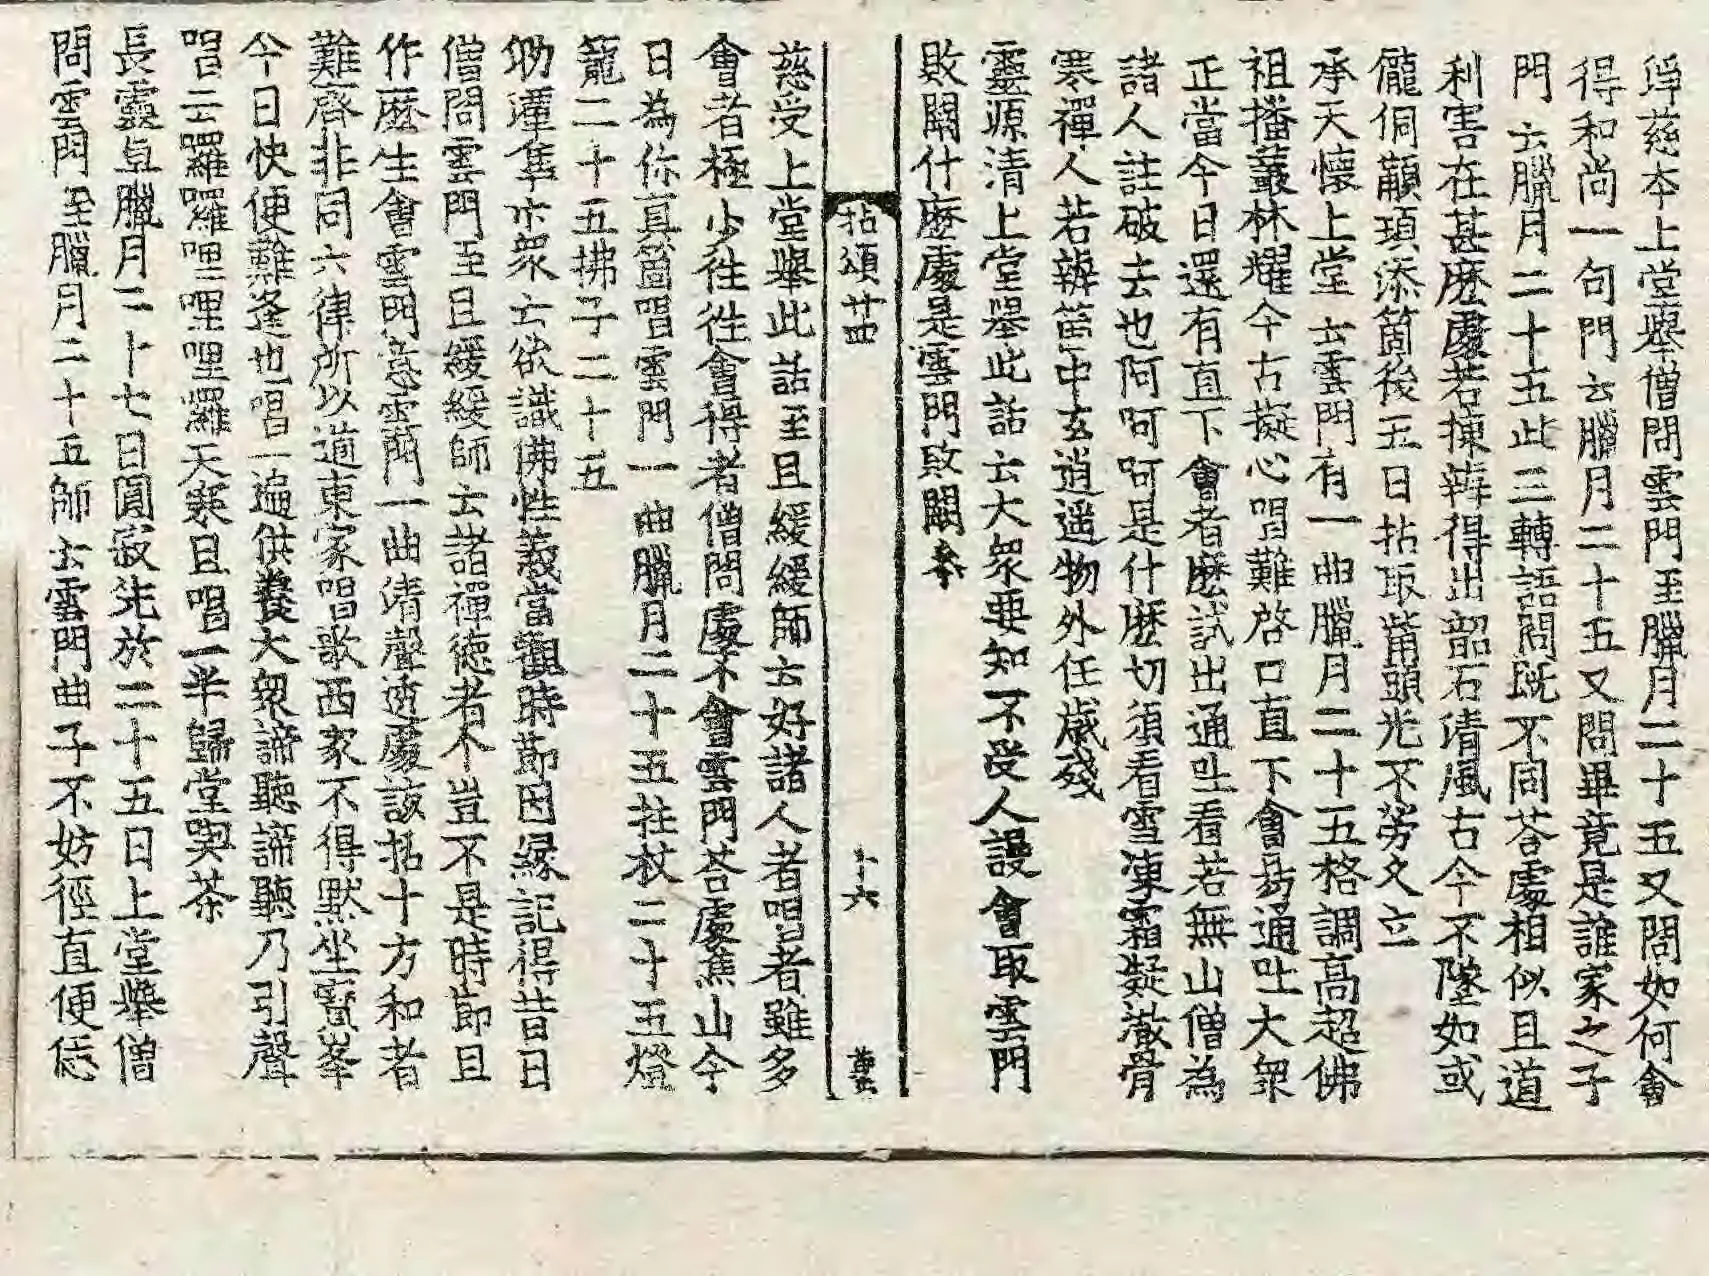 淨慈本上堂舉僧問雲門至臘月二十五又問如何會
得和尚一句門云臘月二十五又問畢竟是誰家之子
門云臘月二十五此三轉語問既不同荅處相似且道
利害在甚麽處若揀辨得出韶石清風古今不墜如或
儱侗顢頇添箇後五日拈取觜頭光不勞久立
承天懷上堂云雲門有一曲臘月二十五格調高超佛
祖播叢林耀今古擬心唱難啓口直下會易通吐大衆
正當今日還有直下會者麽試出通吐看若無山僧為
諸人註破去也阿呵呵是什麽切須看雪凍霜凝澈骨
寒禪人若辨笛中玄逍遥物外任歲殘
靈源清上堂舉此話云大衆要知不受人謾會取雲門
敗闕什麽處是雲門敗闕叅
拈頌廿四 十六
慈受上堂舉此話至且緩緩師云好諸人者唱者雖多
會者極少徃徃會得者僧問處不會雲門荅處蕉山今
日為你真箇唱雲門一曲臘月二十五拄杖二十五燈
籠二十五拂子二十五
泐潭隼示衆云欲識佛性義當觀時節因縁記得昔日
僧問雲門至且緩緩師云諸禪德者个豈不是時節且
作麽生會雲門意雲門一曲清聲透處該括十方和者
難啓非同六律所以道東家唱歌西家不得默坐寳峯
今日快便難逢也唱一遍供養大衆諦聽諦聽乃引聲
唱云囉囉哩哩哩囉天寒且唱一半歸堂喫茶
長靈卓臘月二十七日圓寂先於二十五日上堂舉僧
問雲門至臘月二十五師云雲門曲子不妨徑直便恁